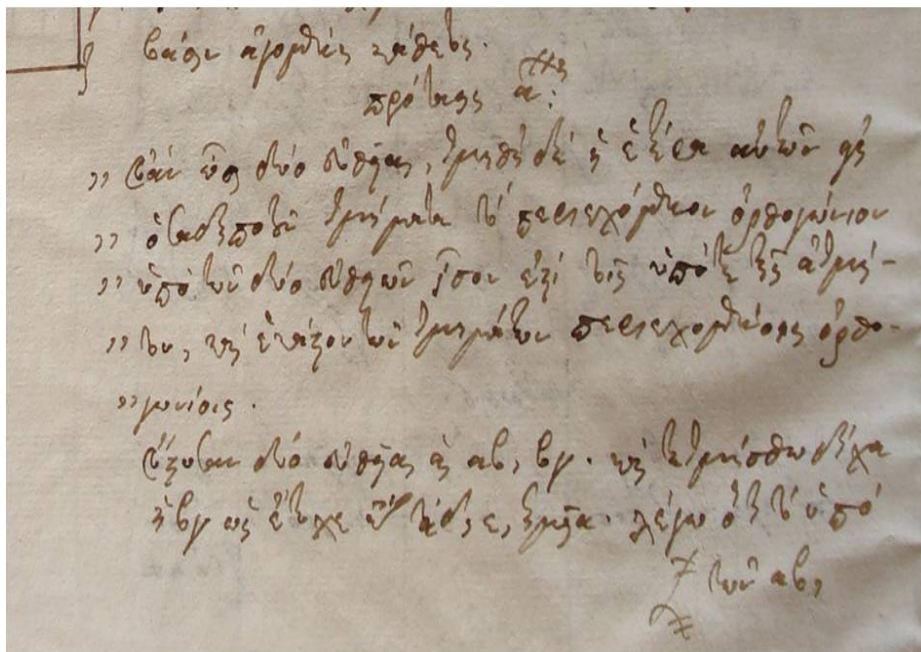 βάσιν ἀγομένης καθέτου.
πρότασις α:
" Ἐὰν ὦσι δύο εὐθεῖαι, τμηθῇ δὲ ἡ ἑτέρα αὐτῶν εἰς
" ὁσαδηποτοῦν τμήματα τὸ περιεχόμενον ὀρθογώνιον
" ὑπὸ τῶν δύο εὐθειῶν ἴσον ἐστὶ τοῖς ὑπό τε τῆς ἀτμή-
" του, καὶ ἑκάστου τῶν τμημάτων περιεχομένοις ὀρθο-
" γωνίοις.
Ἔστωσαν δύο εὐθεῖαι αἱ αβ, βγ. καὶ τετμήσθω δίχα
ἡ βγ ὡς ἔτυχε τὰ δ, ε, σημεῖα. λέγω ὅτι τὸ ὑπὸ
τῶν αβ,